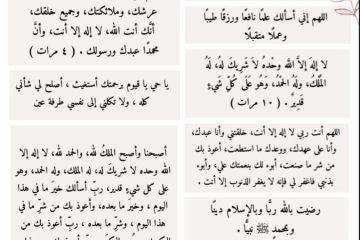 اللهم إني أسألك علمًا نافعا ورزقًا طيبًا
وعملًا متقبلًا
لا إلهَ إلاَّ اللَّهُ وحْدهُ لاَ شَرِيكَ لَهُ، لَهُ
المُلْكُ، ولَهُ الحمْدُ، وَهُو عَلَى كُلِّ شَيءٍ
قَدِيرٌ. ( ١٠ مرات )
اللهم أنت ربي لا إله إلا أنت، خلقتني وأنا عبدك،
وأنا على عهدك، ووعدك ما استطعت، أعوذ بك
من شر ما صنعت، أبوء لك بنعمتك علي، وأبوء
بذنبي فاغفر لي فإنه لا يغفر الذنوب إلا أنت.
رضيت بالله ربًّا وبالإسلام دينًا
وبمحمدٍ ﷺ نبيًّا.
عرشك، وملائكتك، وجميع خلقك،
أنَّك أنت الله، لا إله إلا أنت، وأنَّ
محمدًا عبدك ورسولك. ( ٤ مرات )
يا حي يا قيوم برحمتك أستغيث، أصلح لي شأني
كله، ولا تكلني إلى نفسي طرفة عين
أصبحنا وأصبح الملكُ لله، والحمد لله، لا إله إلا
الله وحده لا شريك له، له الملك، وله الحمد، وهو
على كل شيءٍ قدير، ربِّ أسألك خيرَ ما في هذا
اليوم، وخير ما بعده، وأعوذ بك من شرِّ ما في
هذا اليوم، وشرِّ ما بعده، ربِّ أعوذ بك من